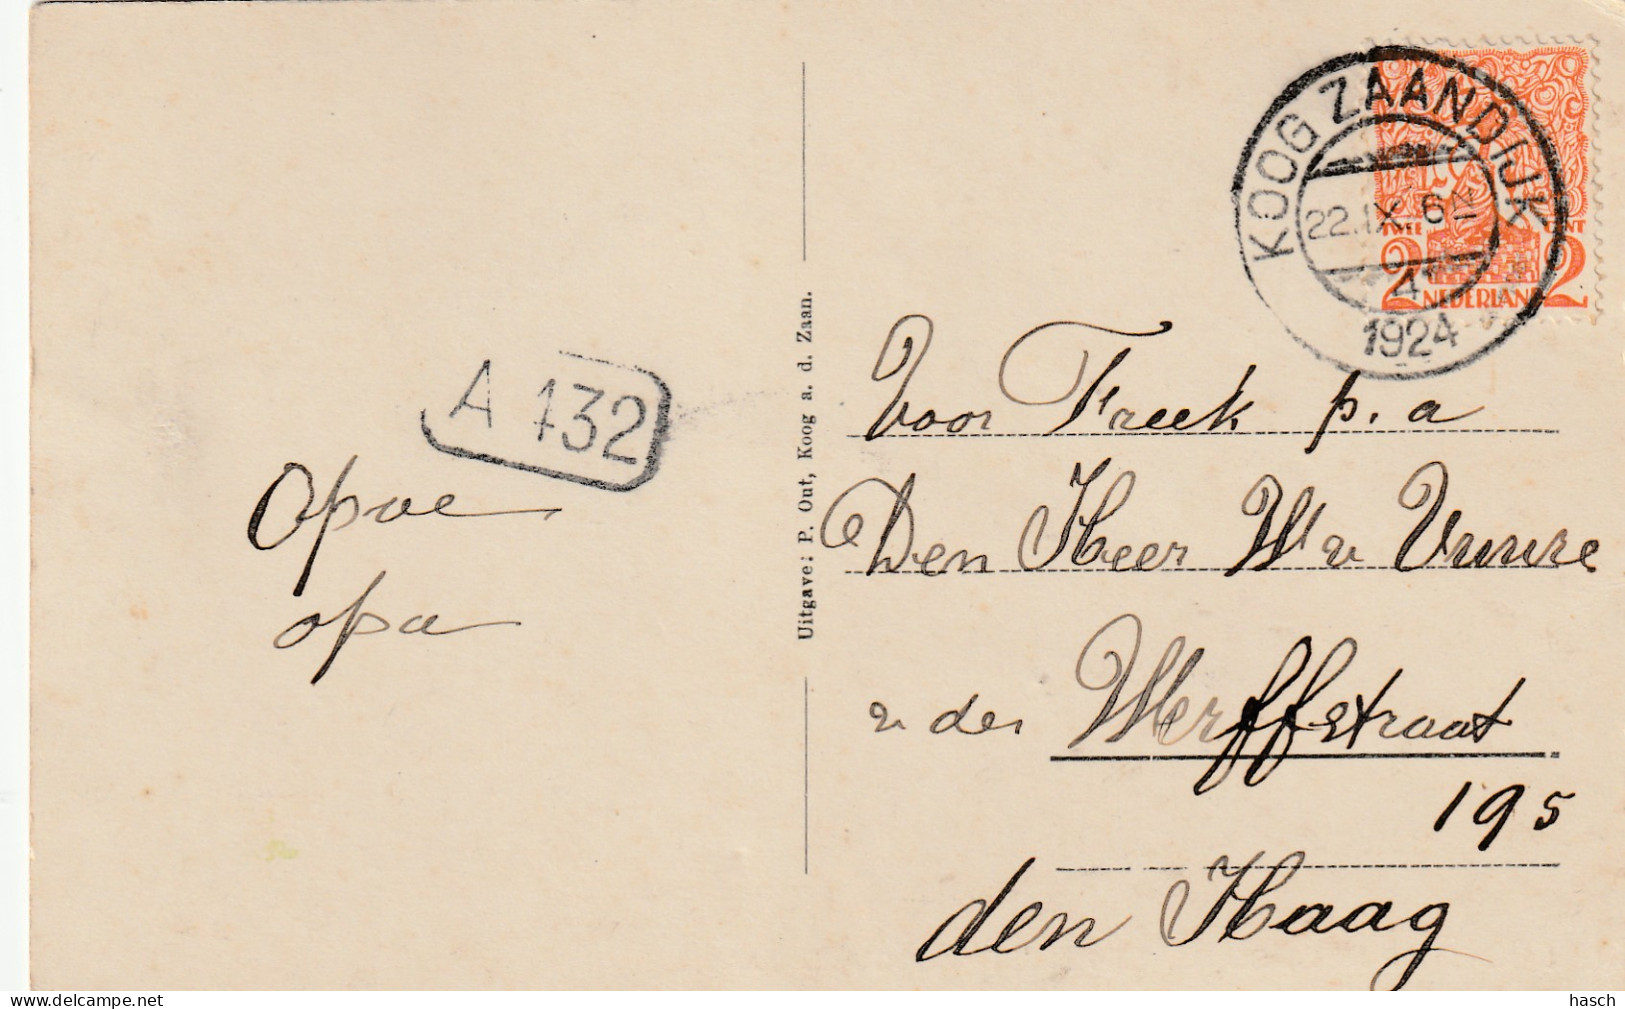 KOOG ZAANDIJK
22.IX. 6
4
1924
TWEE CENT
2 NEDERLAND 2
A 132
opa
Uitgave: P. Out, Koog a. d. Zaan.
Voor Freek p. a
Den Heer W v Vuure
v der Werffstraat
195
den Haag
hasch